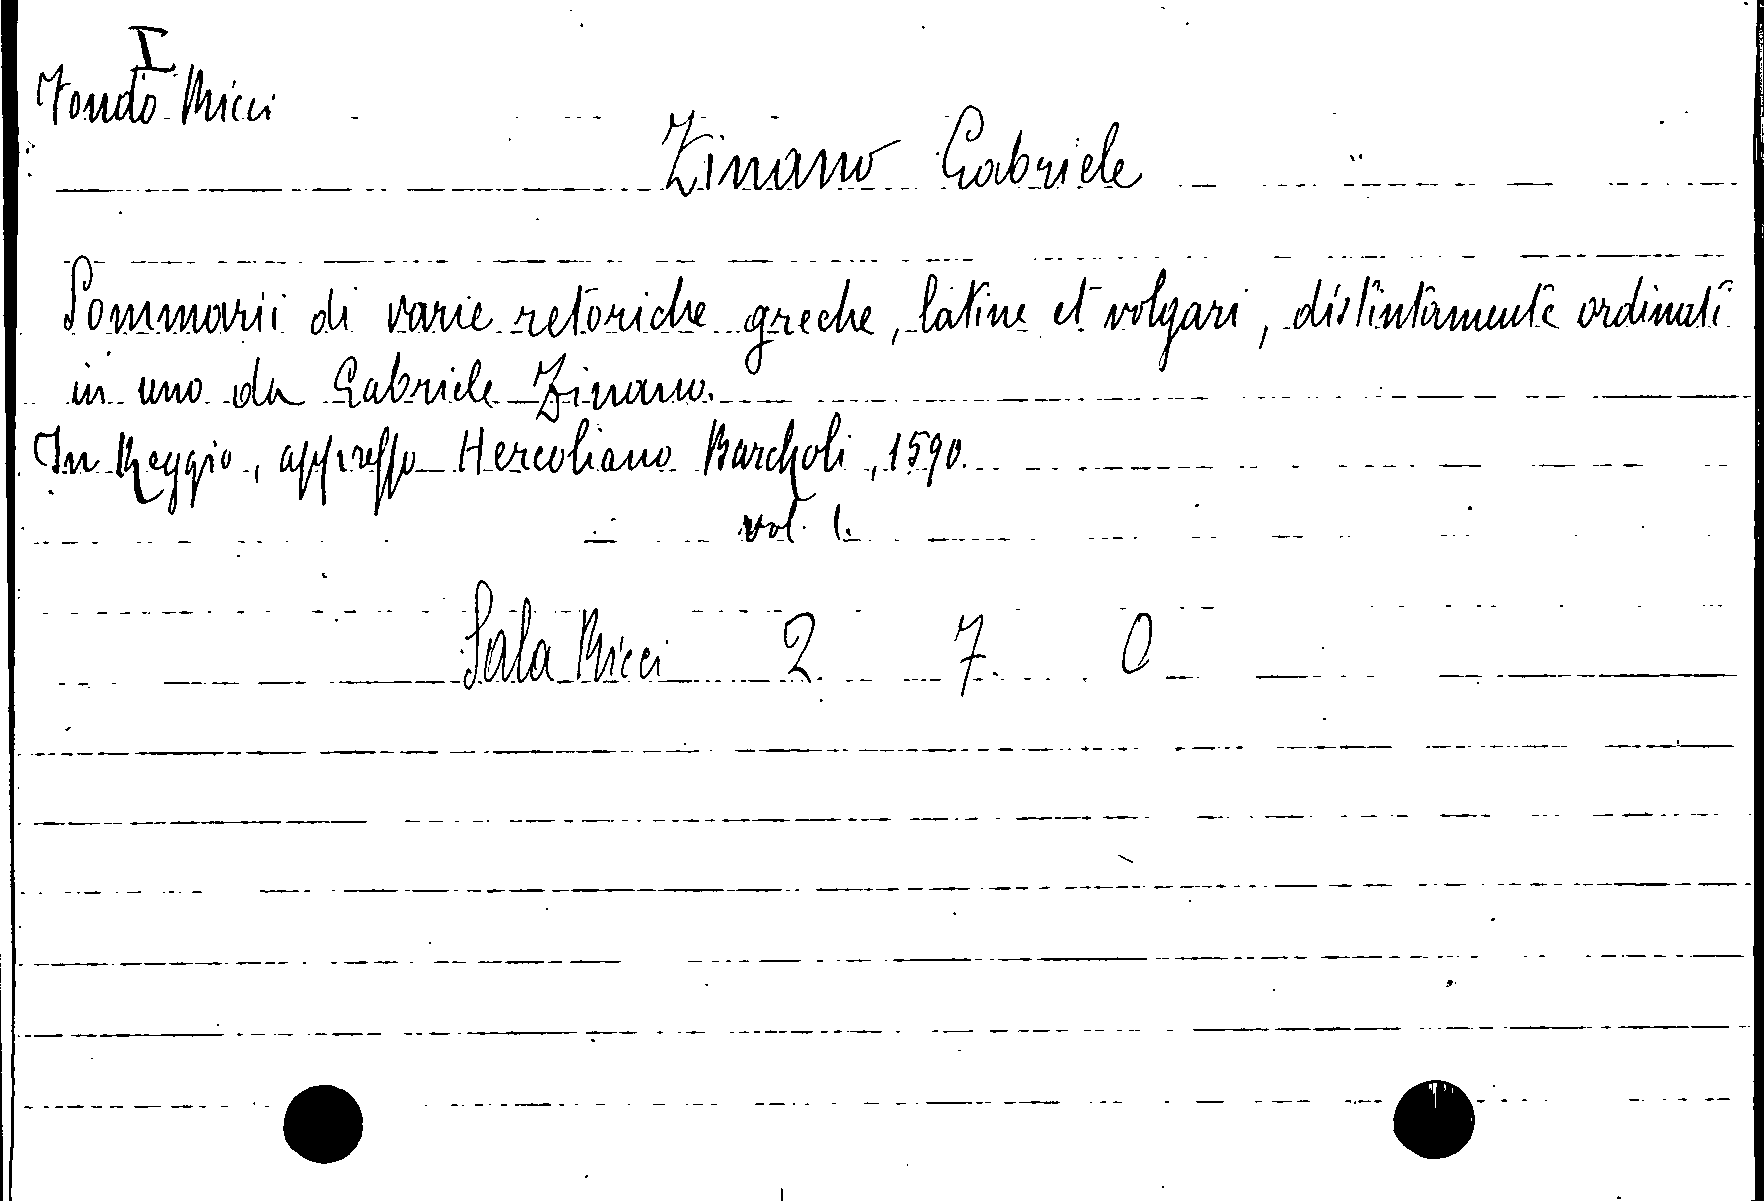 I
Fondo Ricci
Zinano Gabriele
Sommarii di varie retoriche greche, latine et volgari, distintamente ordinati
in uno da Gabriele Zinano.
In Reggio, appresso Hercoliano Bartholi, 1590.
vol. 1.
Sala Ricci 2 7 0